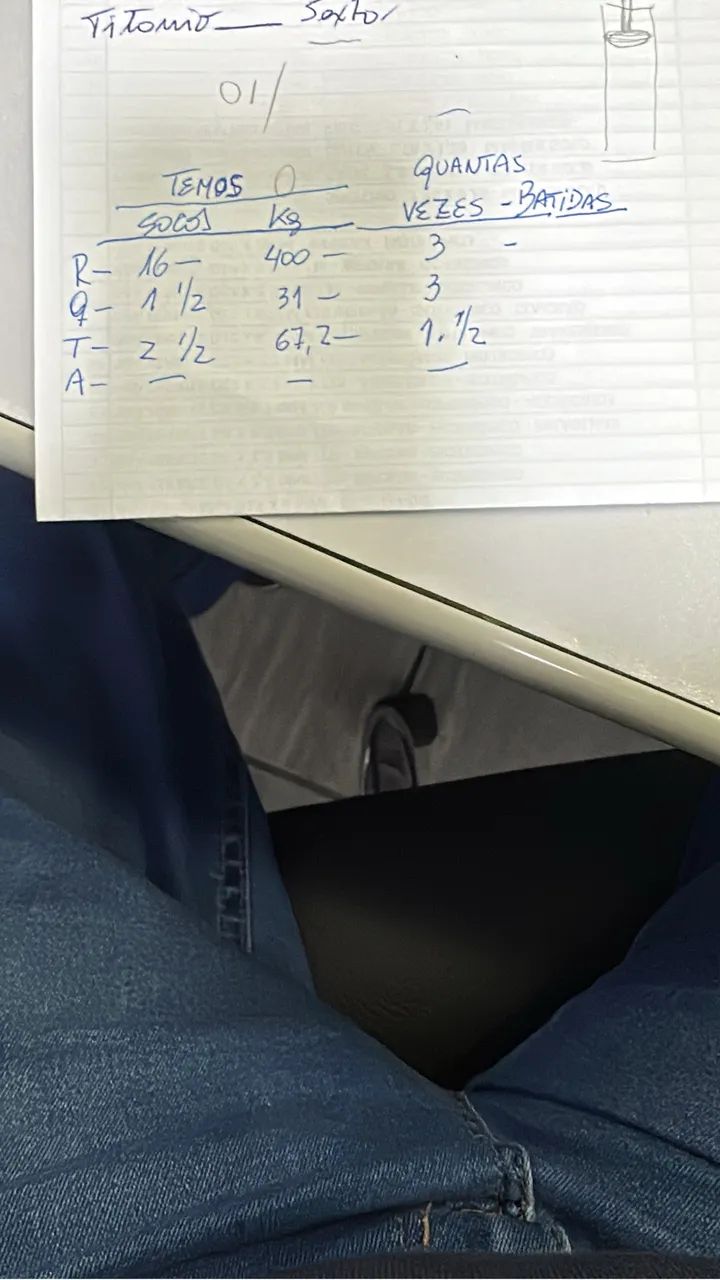 Titonio — Sexto/
01/
TEMOS 0 QUANTAS
SOCOS Kg VEZES - BATIDAS
R- 16 - 400 - 3 -
Q- 1 1/2 31 - 3
T- 2 1/2 67,2 - 1. 1/2
A- — — —